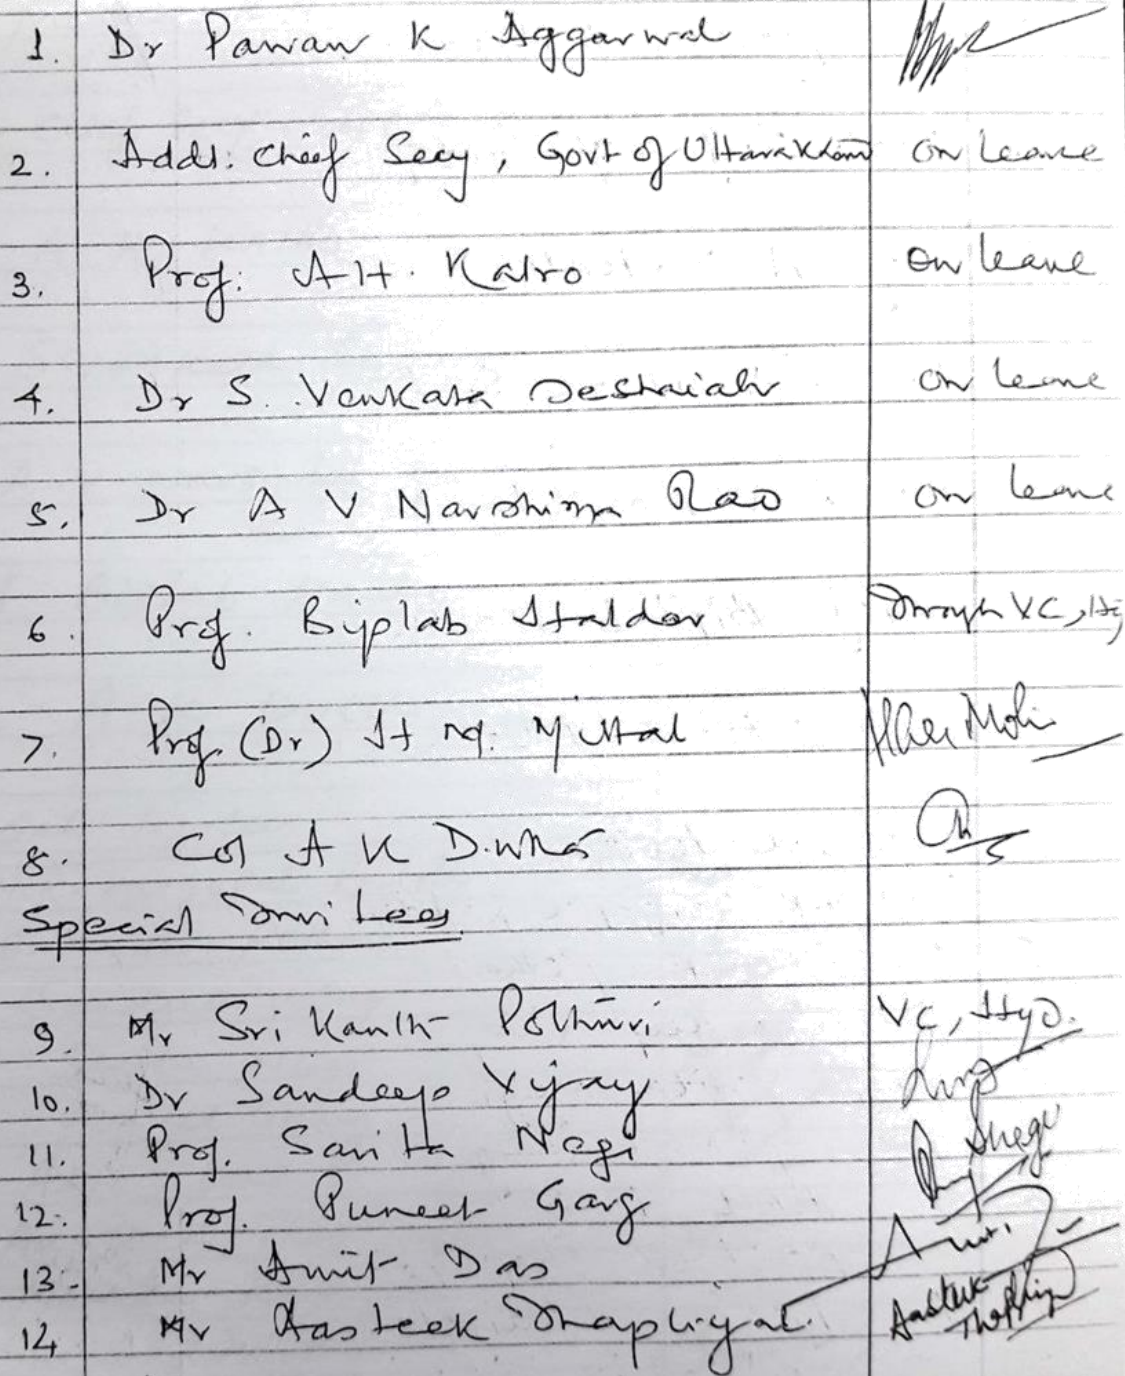 1. Dr Pawan K Aggarwal
2. Addl. Chief Secy, Govt of Uttarakhand on leave
3. Prof. A H. Kalro on leave
4. Dr S. Venkata Seshaiah on leave
5. Dr A V Narshima Rao on leave
6. Prof. Biplab Haldar Through VC, Hyd
7. Prof. (Dr) H M. Mittal
8. Col A K
Special Invitees
9. Mr Srikanth Pothuri VC, Hyd.
10. Dr Sandeep Vijay
11. Prof. Sarita Negi SNegi
12. Prof. Puneet Garg
13. Mr Amit Das Amit
14 Mr Aasteek Thapliyal Aasteek
Thapliyal